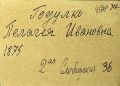 Годулко
Пелагея Ивановна
1875
2ая Слободская 36